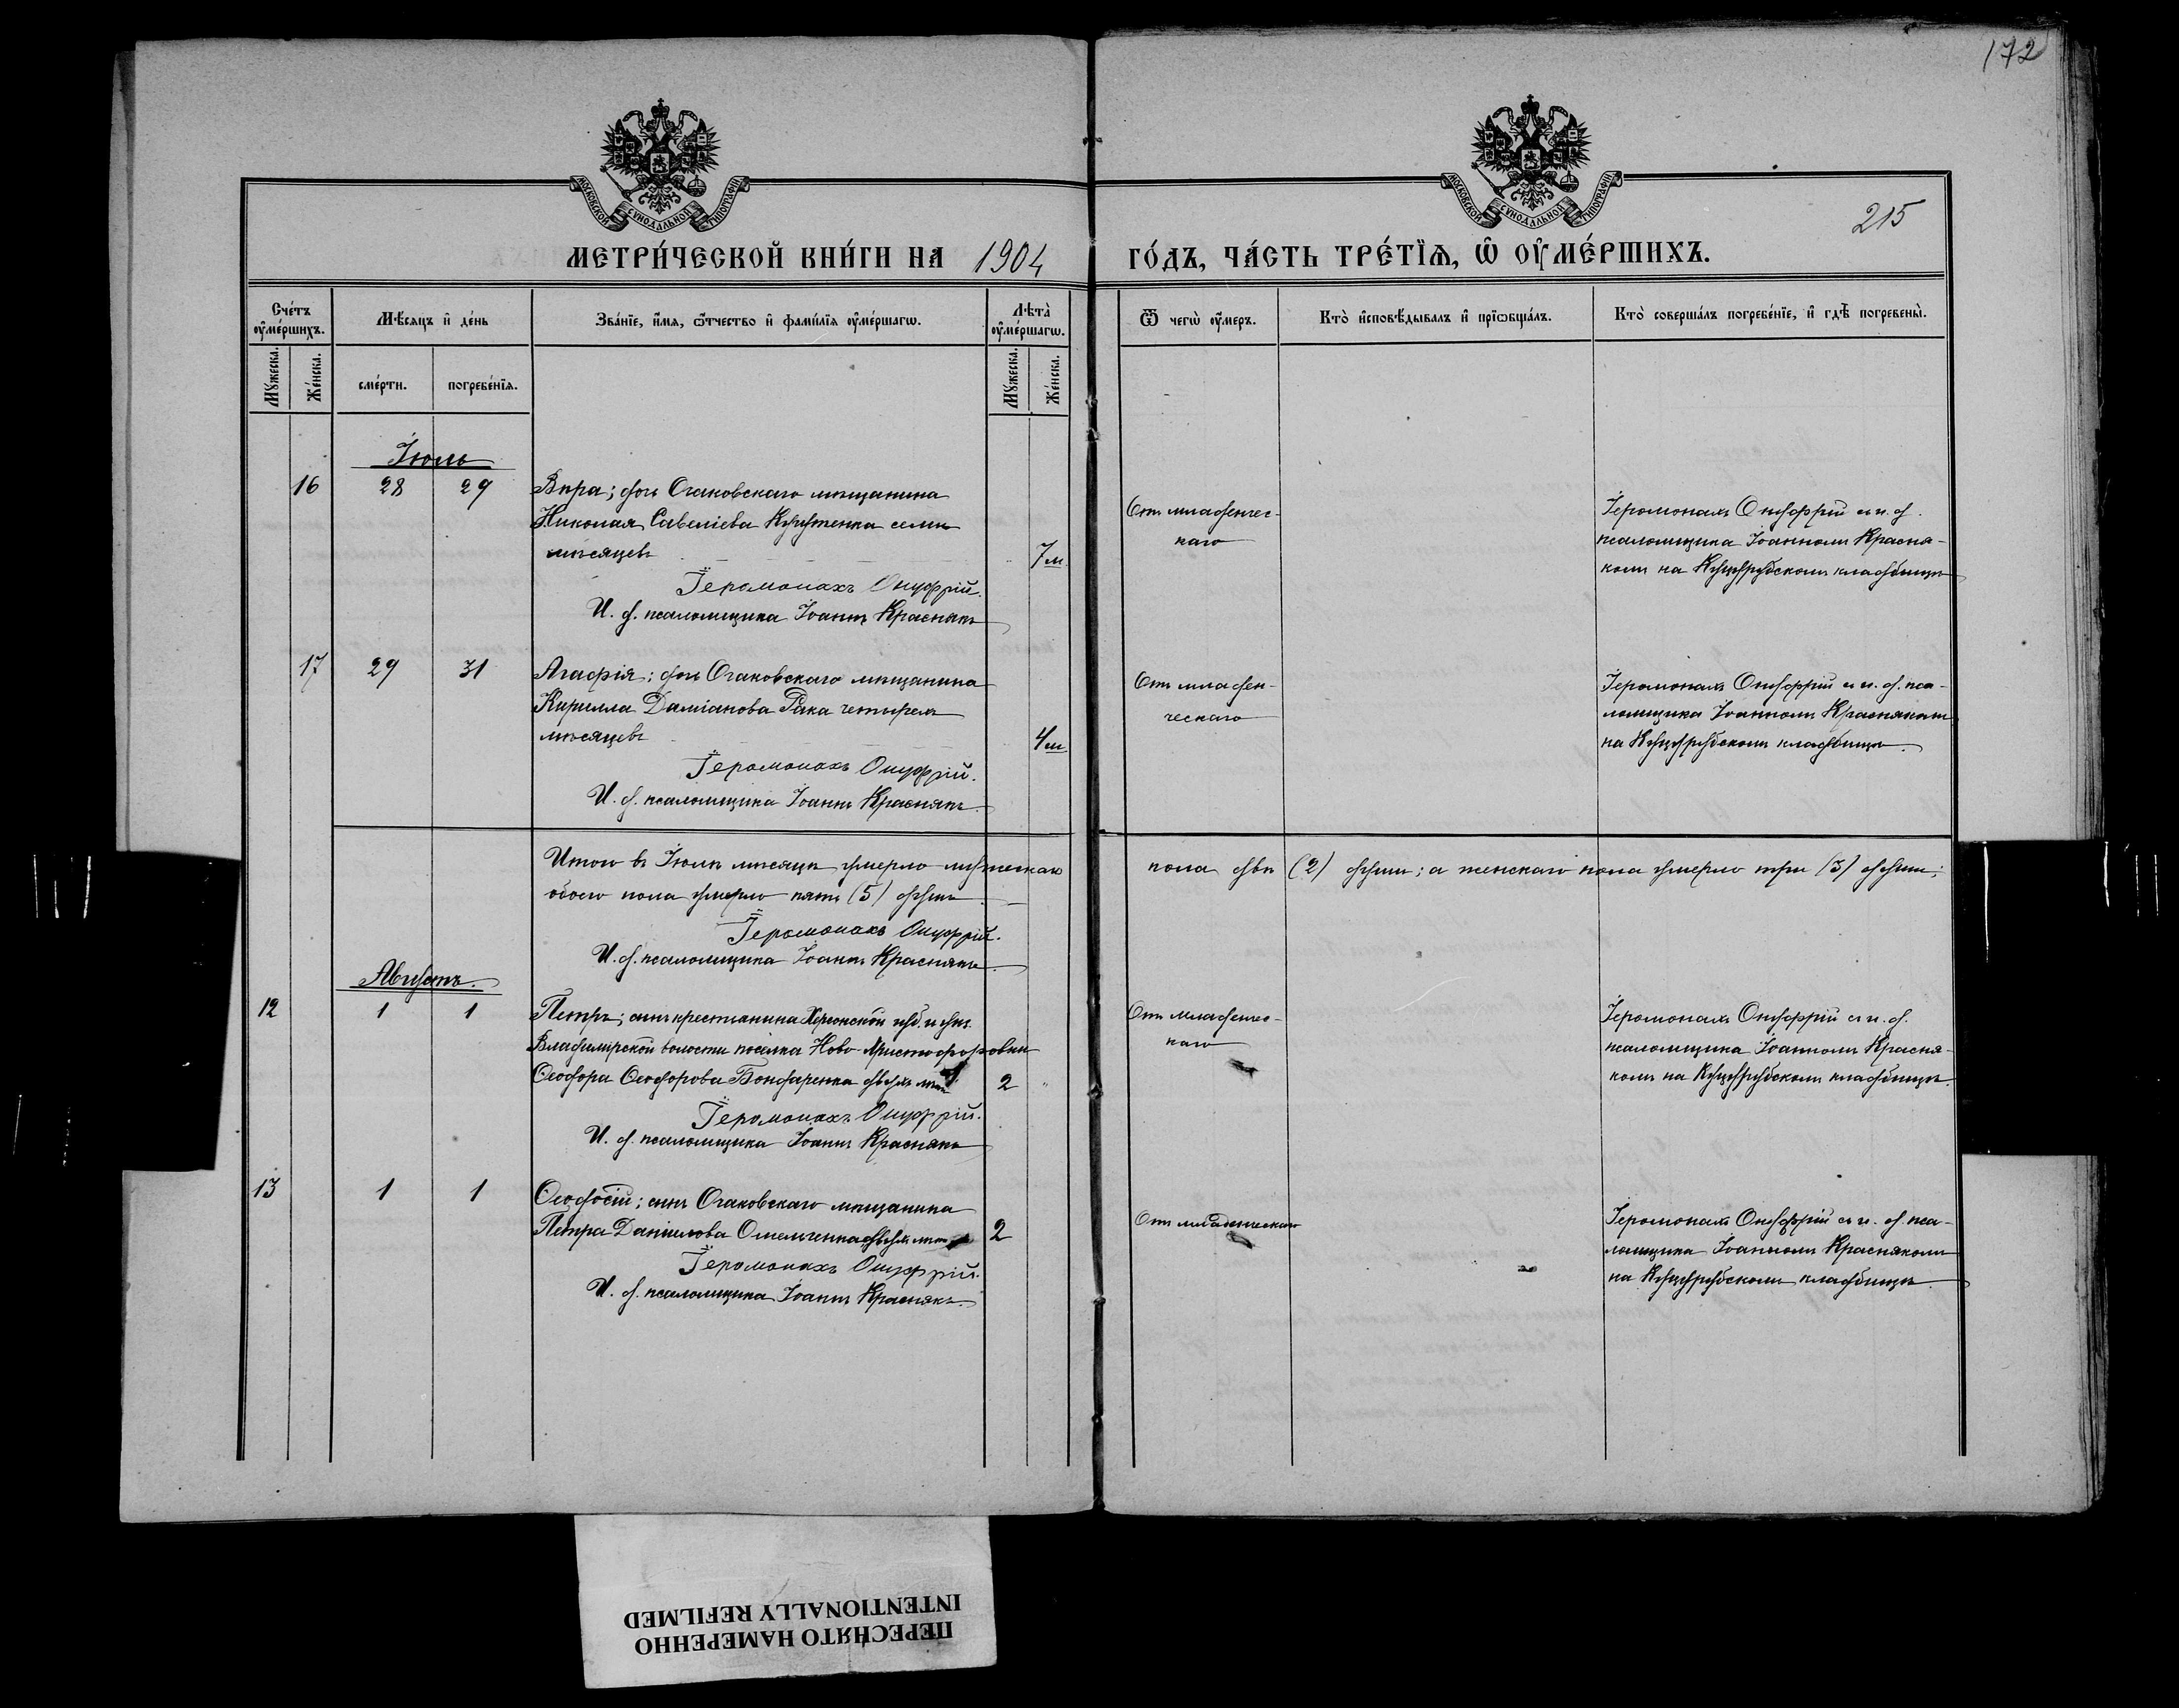 172
215
МОСКОВСКОЙ СѴНОДАЛЬНОЙ ТИПОГРАФІИ
МОСКОВСКОЙ СѴНОДАЛЬНОЙ ТИПОГРАФІИ
МЕТРИ́ЧЕСКОЙ КНИ́ГИ НА 1904 ГО́ДЪ, ЧА́СТЬ ТРЕ́ТЇѦ, Ѡ҆ ОУ҆МЕ́РШИХЪ.
Сче́тъ оу҆ме́ршихъ.
Мѣ́сяцъ и҆ де́нь
Зва́нїе, и҆́мя, ѻ҆́тчество и҆ фами́лїя оу҆ме́ршагѡ.
Лѣта̀ оу҆ме́ршагѡ.
Ѿ чегѡ̀ оу҆́меръ.
Кто̀ и҆сповѣ́дывалъ и҆ прїѡбща́лъ.
Кто̀ соверша́лъ погребе́нїе, и҆ гдѣ̀ погребены̀.
Мꙋжеска.
Же́нска.
сме́рти.
погребе́нїя.
Мꙋжеска.
Же́нска.
Іюль
16 28 29 Вѣра; дочь Очаковскаго мѣщанина
Николая Савеліева семи
мѣсяцевъ 7м.
Іеромонахъ Онуфрій.
И. д. псаломщика Іоаннъ Краснякъ
От младенчес-
каго
Іеромонахъ Онуфрій съ и. д.
псаломщика Іоанномъ Красня-
комъ на Куцурубскомъ кладбищѣ
17 29 31 Агафія; дочь Очаковскаго мѣщанина
Кирилла Даміанова Рака четырехъ
мѣсяцевъ 4м
Іеромонахъ Онуфрій.
И. д. псаломщика Іоаннъ Краснякъ
От младен-
ческаго
Іеромонахъ Онуфрій съ и. д. пса-
ломщика Іоанномъ Краснякомъ
на Куцурубскомъ кладбищѣ
Итого въ Іюлѣ мѣсяцѣ умерло мужескаго пола двѣ (2) души; а женскаго пола умерло три (3) души;
обоего пола умерло пять (5) душъ
Іеромонахъ Онуфрій.
И. д. псаломщика Іоаннъ Краснякъ
Августъ.
12 1 1 Петръ; сынъ крестьянина Херсонской губ. и уѣз.
Владимірской волости поселка Ново-Христофоровки
Ѳеодора Ѳеодорова Бондаренка двухъ лѣтъ 2 "
Іеромонахъ Онуфрій.
И. д. псаломщика Іоаннъ Краснякъ
От младенчес-
каго
Іеромонахъ Онуфрій съ и. д.
псаломщика Іоанномъ Красня-
комъ на Куцурубскомъ кладбищѣ.
13 1 1 Ѳеодосій; сынъ Очаковскаго мѣщанина
Петра Даніилова Омельченка двухъ лѣтъ 2
Іеромонахъ Онуфрій.
И. д. псаломщика Іоаннъ Краснякъ.
От младенческаго
Іеромонахъ Онуфрій съ и. д. пса-
ломщика Іоанномъ Краснякомъ
на Куцурубскомъ кладбищѣ
ПЕРЕСНЯТО НАМЕРЕННО
INTENTIONALLY REFILMED